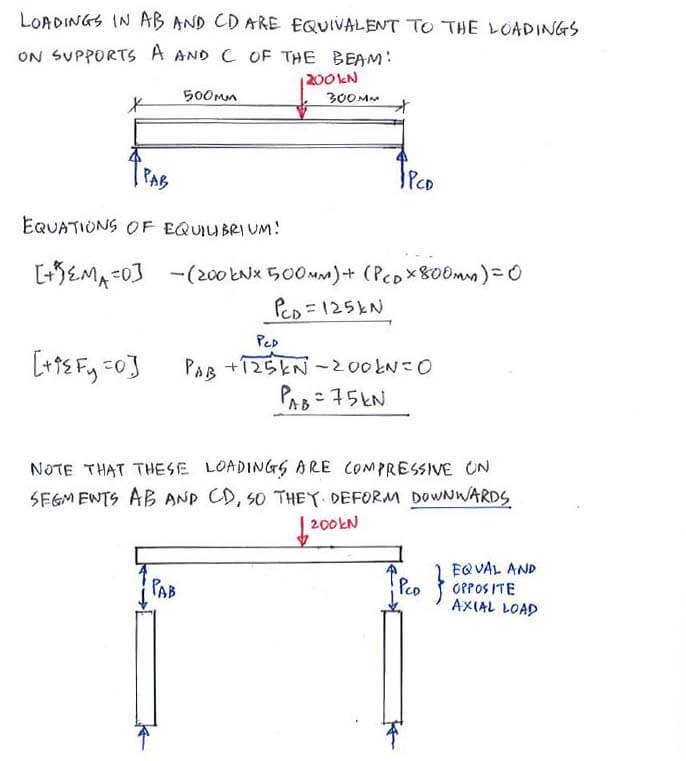 LOADINGS IN AB AND CD ARE EQUIVALENT TO THE LOADINGS
ON SUPPORTS A AND C OF THE BEAM:
200kN
500mm
300mm
PAB
PCD
EQUATIONS OF EQUILIBRIUM:
[+↶ΣMA=0] -(200kN×500mm)+(PCD×800mm)=0
PCD=125kN
PCD
[+↑ΣFy=0] PAB+125kN-200kN=0
PAB=75kN
NOTE THAT THESE LOADINGS ARE COMPRESSIVE ON
SEGMENTS AB AND CD, SO THEY DEFORM DOWNWARDS
200kN
PAB
PCD
EQUAL AND
OPPOSITE
AXIAL LOAD